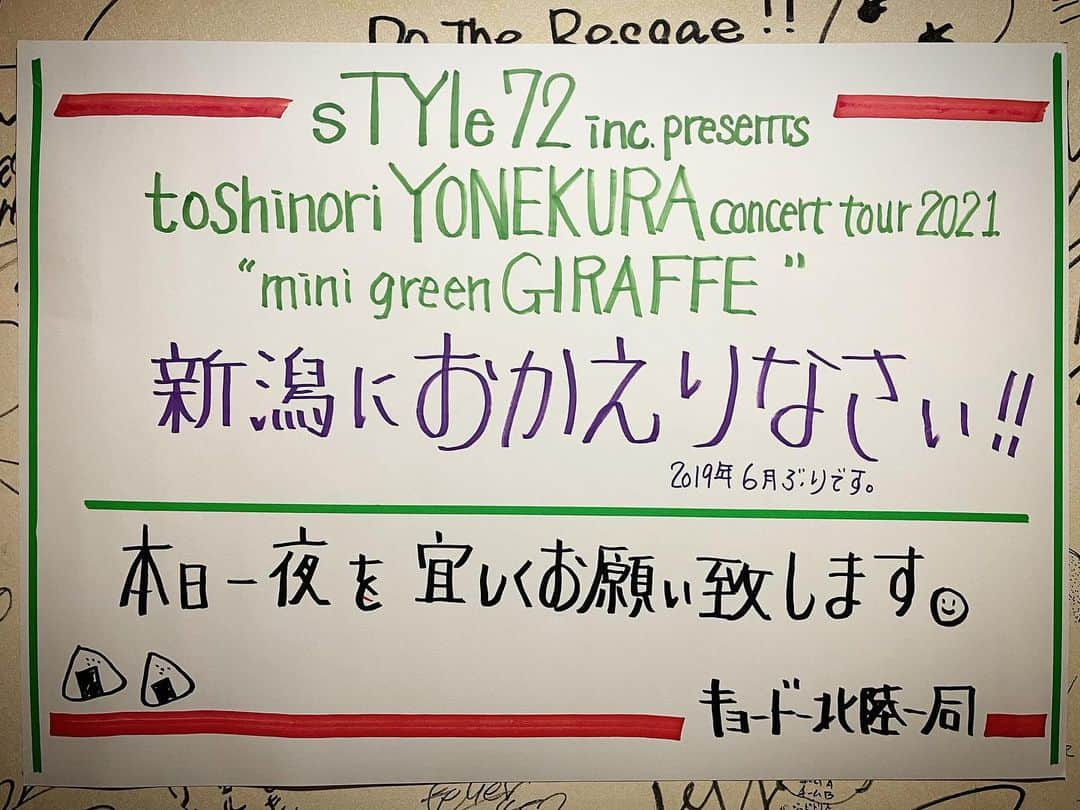 Do The Reggae!!
sTYle72 inc. presents
toshinori YONEKURA concert tour 2021
“mini green GIRAFFE”
新潟におかえりなさい!!
2019年6月ぶりです。
本日一夜を宜しくお願い致します。
キョードー北陸一同